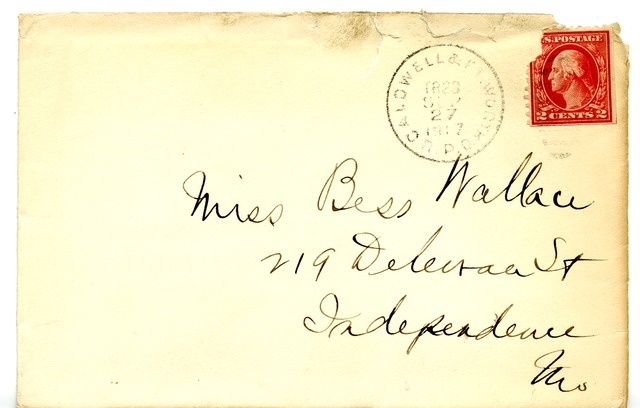 S. POSTAGE
2 CENTS 2
CALDWELL & FT. WORTH R.P.O.
27
1917
Miss Bess Wallace
219 St
Independence
Mo